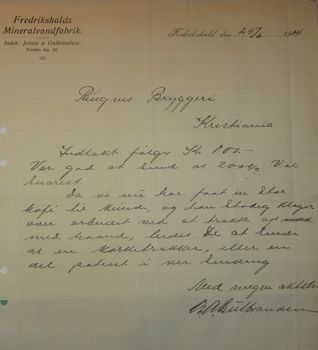 Fredrikshalds
Mineralvandfabrik.
Indeh. Jensen & Gulbrandsen.
Telefon No. 20.
Fredrikshald den 25/6 1914
Ringnes Bryggeri
Kristiania
Indlakt følger Kr 800.-
Vær god at send os 2000/2
Snarest
Da vi nu har faat en stor
Kafi til Kunde, og han stadig klager
over arbeidet ved at trække op
med haand, bedes De at sende
os en korketrækker, eller en
del patent i ver sending
Med megen aktelse
Gulbrandsen